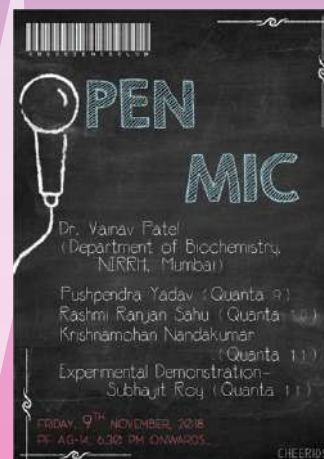 OPEN
MIC
Dr. Vainav Patel
(Department of Biochemistry,
NIRRH, Mumbai)
Pushpendra Yadav (Quanta 9)
Rashmi Ranjan Sahu (Quanta 10)
Krishnamohan Nandakumar
(Quanta 11)
Experimental Demonstration-
Subhajit Roy (Quanta 11)
FRIDAY, 9TH NOVEMBER, 2018
PF AG-14, 6.30 PM ONWARDS...
CHEERIO!